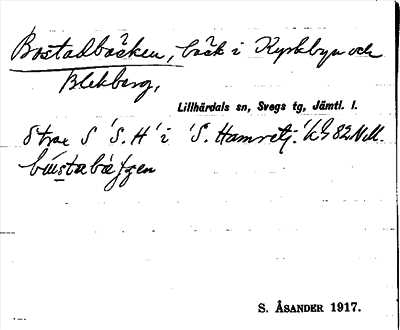 Bostadbäcken, bäck i Kyrkbyn och
Blekberg,
Lillhärdals sn, Svegs tg, Jämtl. l.
Strax S 'S.H' i 'S. Hamretj.' 82
S. ÅSANDER 1917.